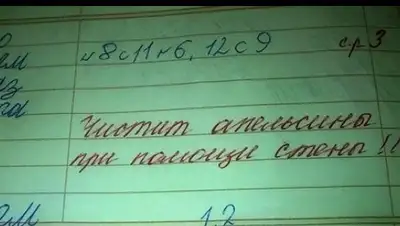 ем
н 8 с 11 н 6, 12 с 9
ср 3
Чистит апельсины
при помощи стены !!
1,2